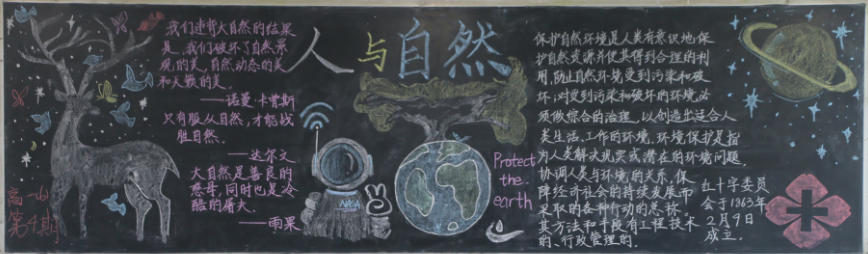 我们违背大自然的结果
是,我们破坏了自然景
观的美,自然动态的美
和天籁的美.
——诺曼·卡曾斯
只有服从自然,才能战
胜自然.
——达尔文
大自然是善良的
慈母,同时也是冷
酷的屠夫.
——雨果
高一(6)
第4期
人与自然
NASA
Protect
the
earth
保护自然环境是人类有意识地保
护自然资源并使其得到合理的利
用,防止自然环境受到污染和破
坏;对受到污染和破坏的环境必
须做综合的治理,以创造出适合人
类生活、工作的环境.环境保护是指
为人类解决现实或潜在的环境问题,
协调人类与环境的关系,保
障经济社会的持续发展而
采取的各种行动的总称.
其方法和手段有工程技术
的、行政管理的.
红十字委员
会于1863年
2月9日
成立.